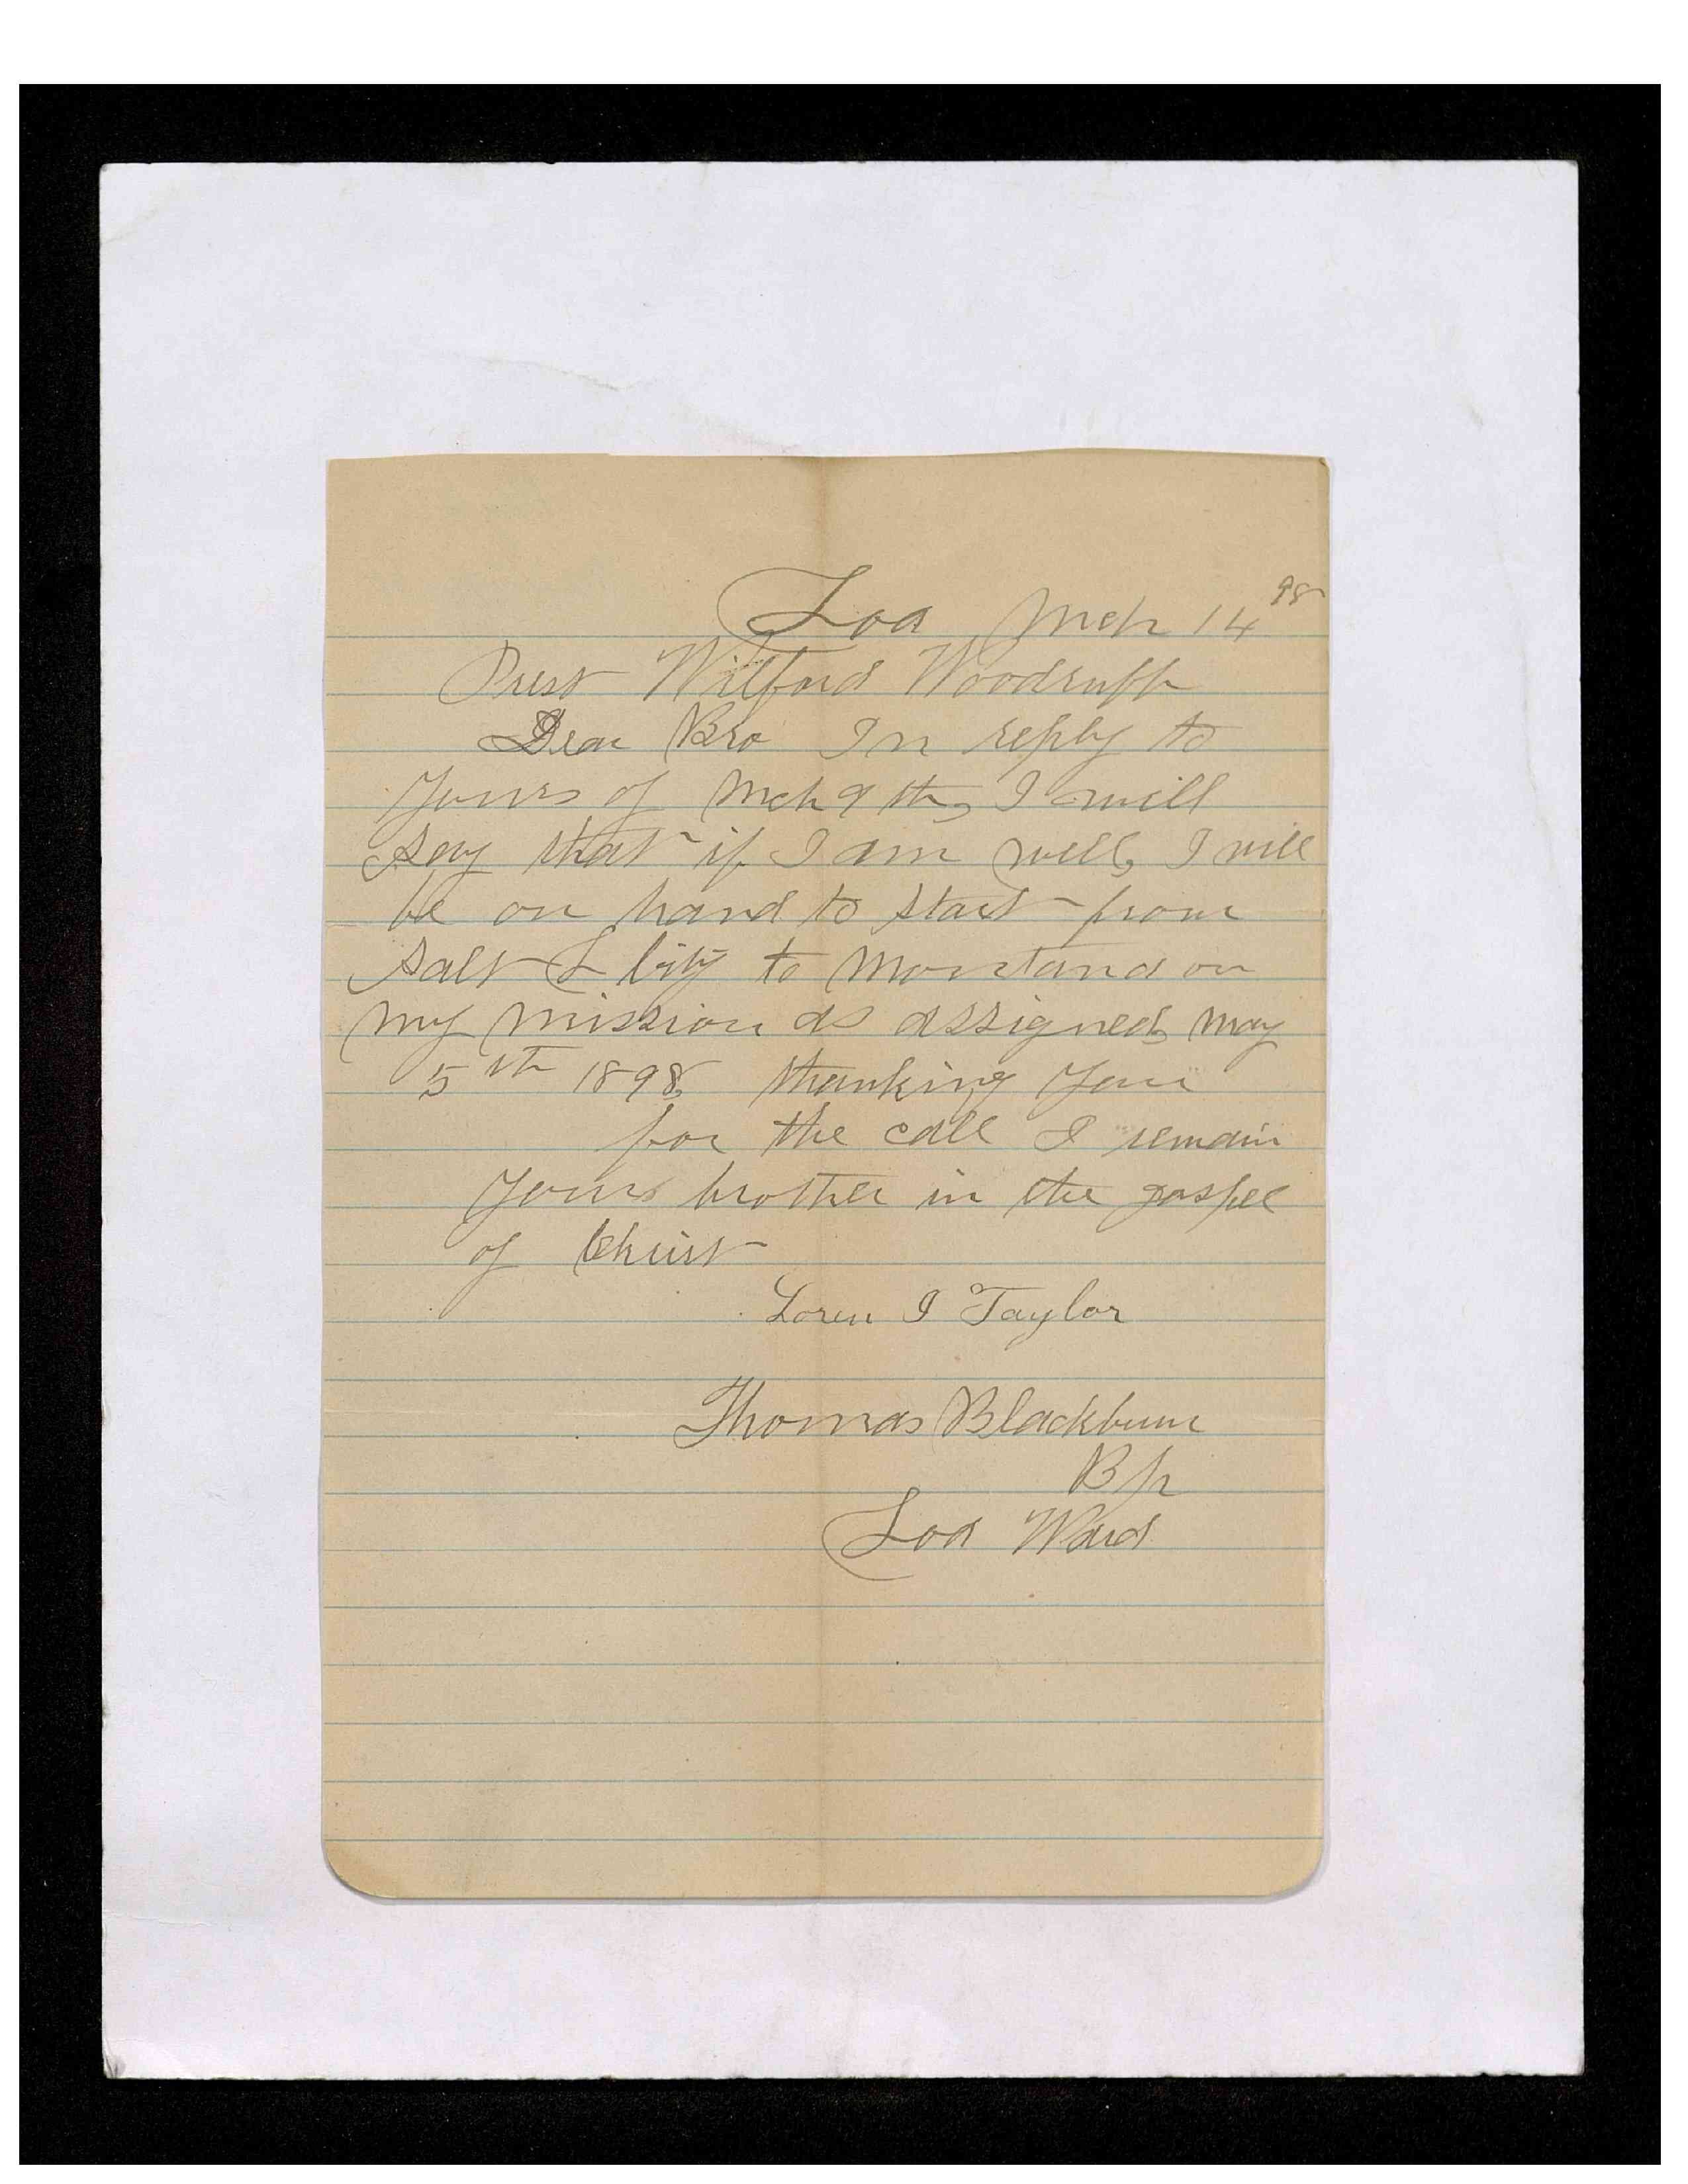 Loa Mch 14 98
Prest Wilford Woodruff
Dear Bro In reply to
Yours of Mch 9th, I will
say that if I am well, I will
be on hand to start from
Salt L City to Montana on
my mission as assigned, May
5th 1898, thanking you
for the call I remain
Yours brother in the gospel
of Christ
Loren I Taylor
Thomas Blackburn
Bp
Loa Ward